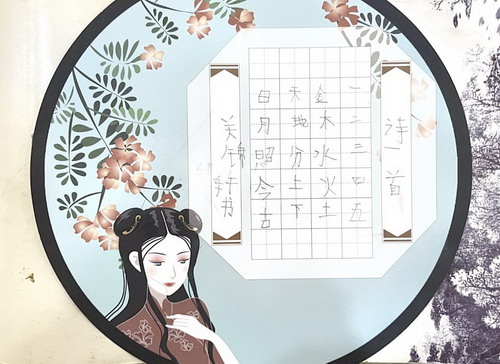 诗一首
一二三四五
金木水火土
天地分上下
日月照今古
关锦轩书